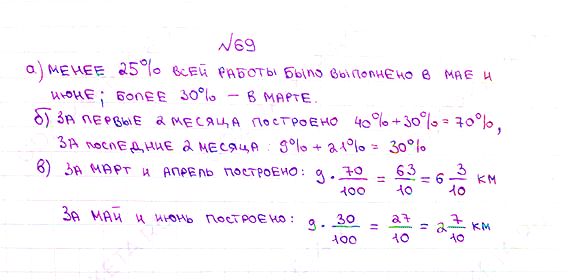 №69
а) МЕНЕЕ 25% ВСЕЙ РАБОТЫ БЫЛО ВЫПОЛНЕНО В МАЕ И
ИЮНЕ; БОЛЕЕ 30% – В МАРТЕ.
б) ЗА ПЕРВЫЕ 2 МЕСЯЦА ПОСТРОЕНО 40%+30%=70%,
ЗА ПОСЛЕДНИЕ 2 МЕСЯЦА: 9%+21%=30%
в) ЗА МАРТ И АПРЕЛЬ ПОСТРОЕНО: 9·70/100 = 63/10 = 6 3/10 КМ
ЗА МАЙ И ИЮНЬ ПОСТРОЕНО: 9·30/100 = 27/10 = 2 7/10 КМ